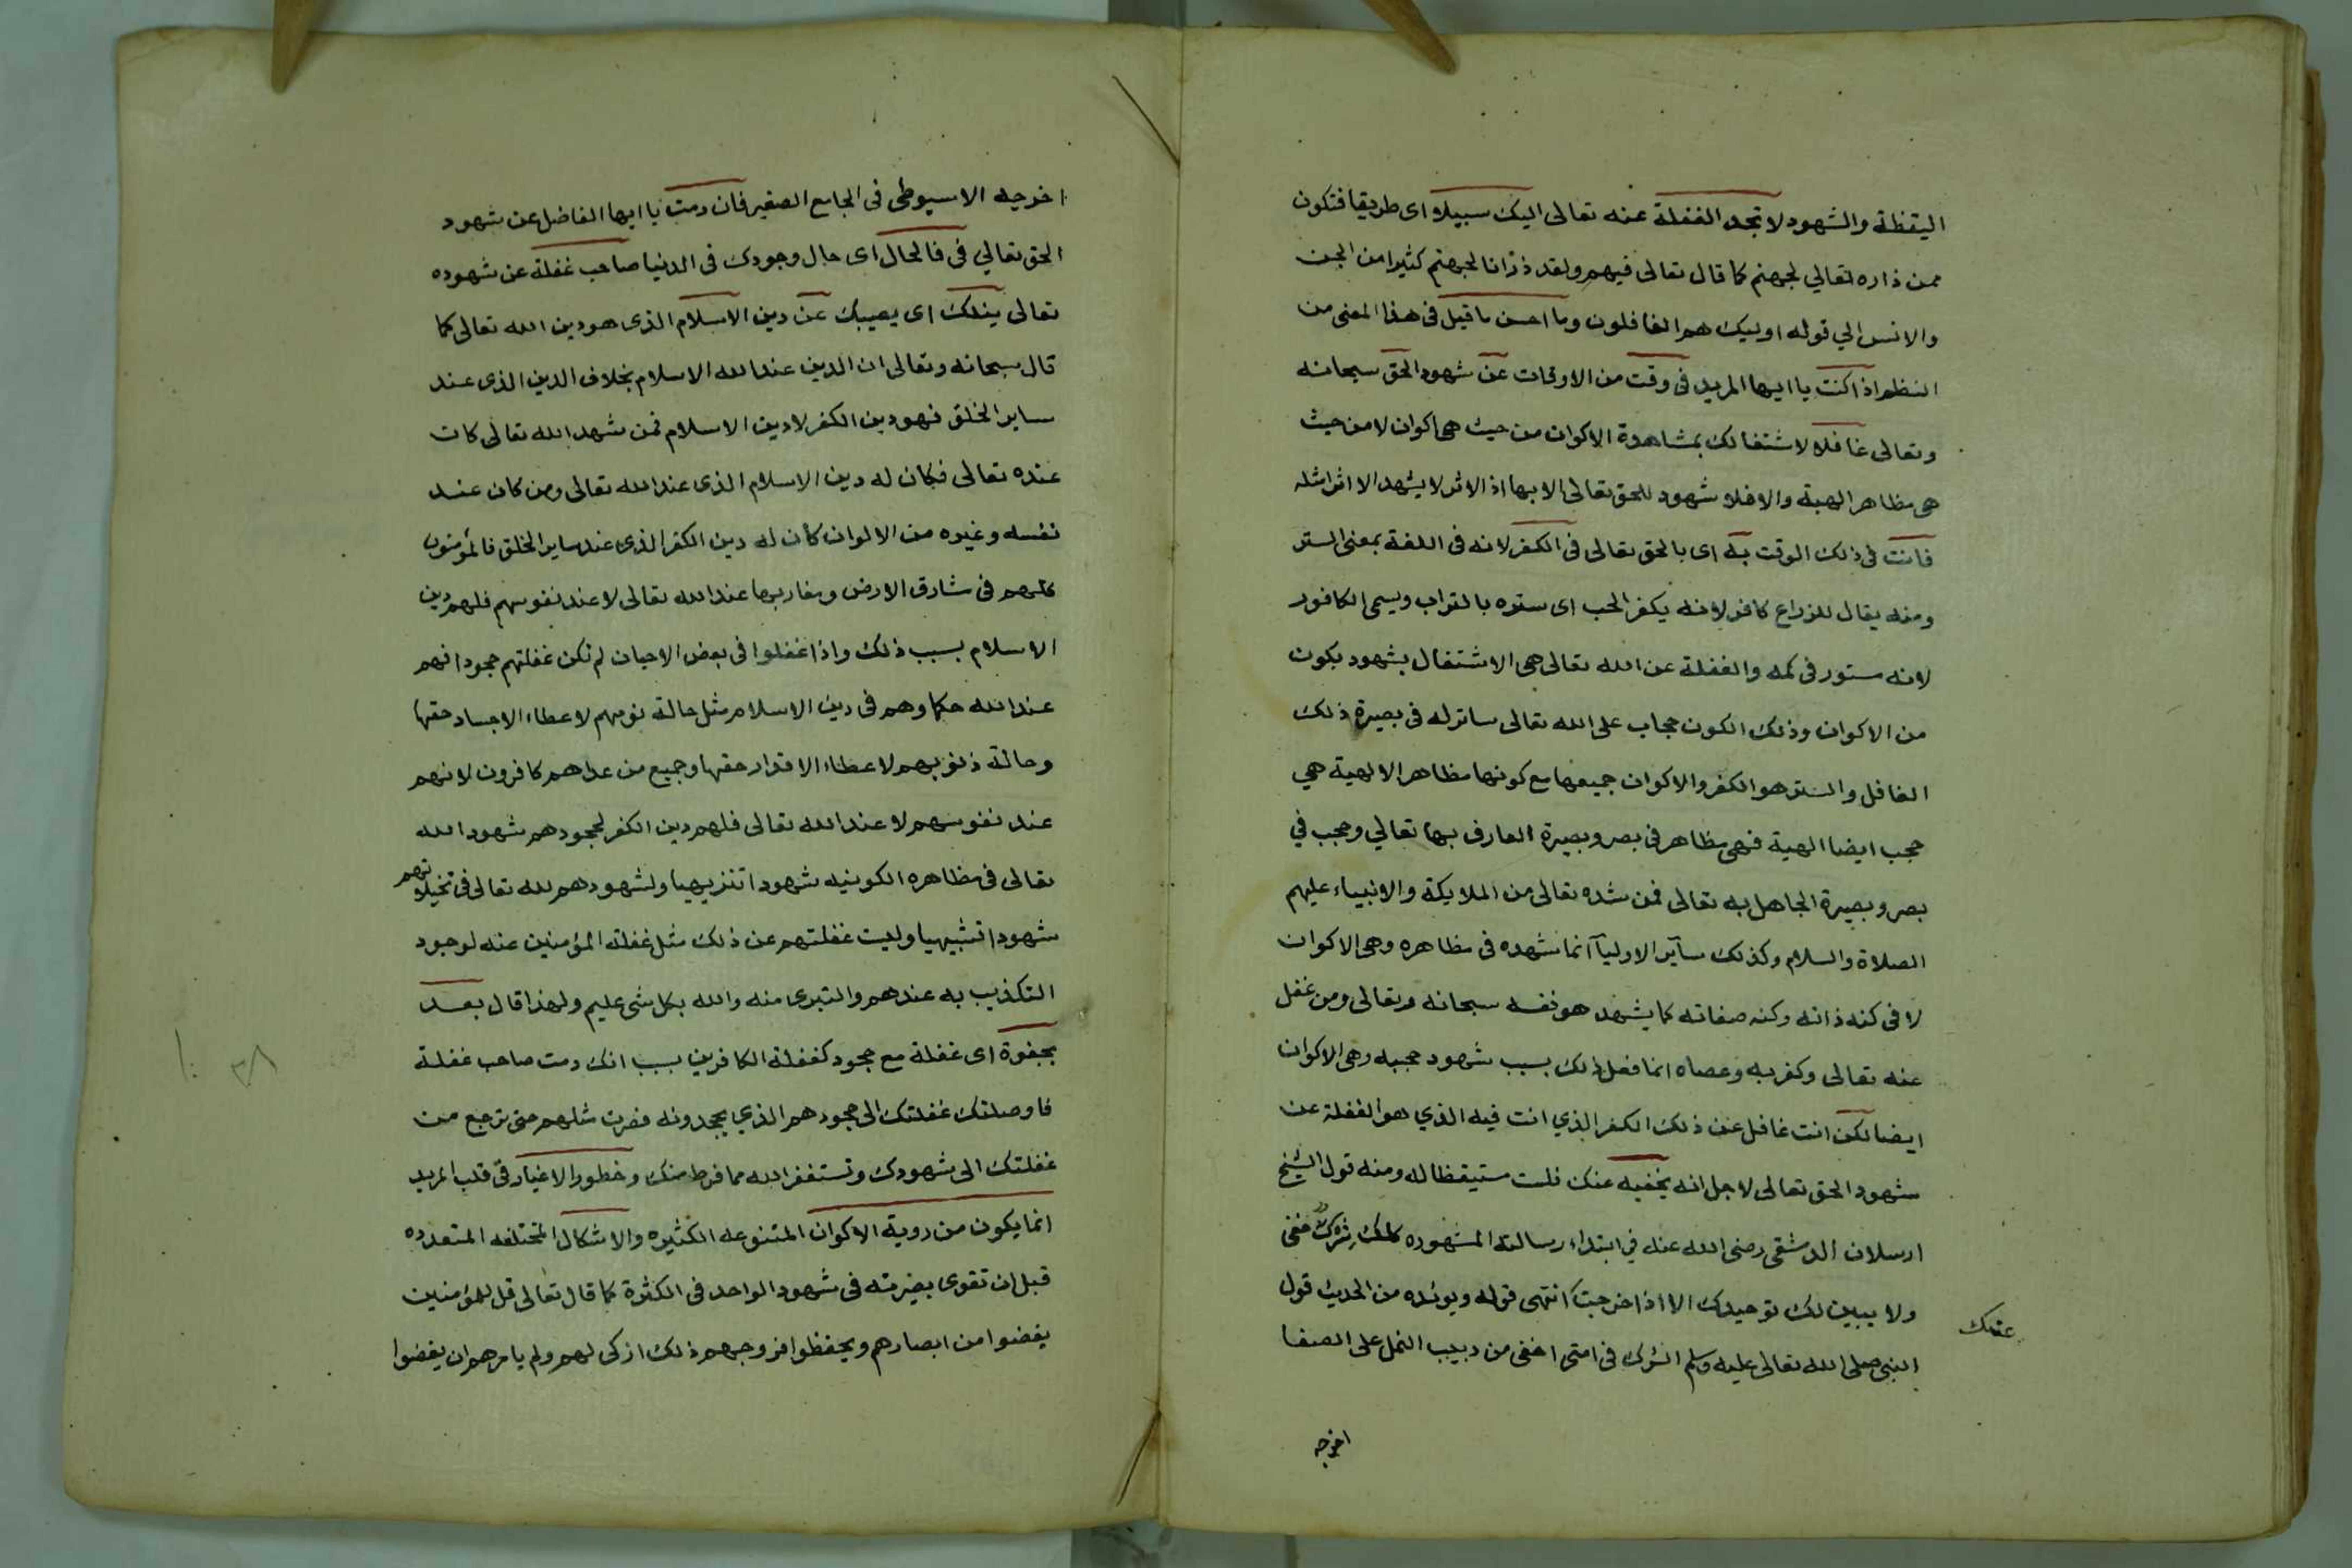 اليقظة والشهود لا تجد الغفلة عنه تعالى اليك سبيلا اى طريقا فتكون
ممن ذاره تعالي لجهنم كما قال تعالى فيهم ولقد ذرانا لجهنم كثيرا من الجن
والانس الي قوله اوليك هم الغافلون وما احسن ما قيل فى هذا المعنى من
النظم اذا كنت يا ايها المريد فى وقت من الاوقات عن شهود الحق سبحانه
وتعالى غافلا لاشتغالك بمشاهدة الاكوان من حيث هى اكوان لا من حيث
هى مظاهر الهية والا فلا شهود للحق تعالى الا بها اذ الاثر لا يشهد الا اثرا مثله
فانت فى ذلك الوقت به اى بالحق تعالى فى الكفر لانه فى اللغة بمعنى الستر
ومنه يقال للزراع كافر لانه يكفر الحب اى ستره بالتراب ويسمى الكافور
لانه مستور فى كمه والغفلة عن الله تعالى هى الاشتغال بشهود بكون
من الاكوان وذلك الكون حجاب على الله تعالى ساتر له فى بصيرة ذلك
الغافل والستر هو الكفر والاكوان جميعها مع كونها مظاهر الالهية هي
حجب ايضا الهية فهى مظاهر فى بصر وبصيرة العارف بها تعالي وحجب في
بصر وبصيرة الجاهل به تعالى فمن شده تعالى من الملايكة والانبياء عليهم
الصلاة والسلام وكذلك سآير الاوليآ انما شهده فى مظاهره وهى الاكوان
لا فى كنه ذاته وكنه صفاته كما يشهد هو نفسه سبحانه وتعالى ومن غفل
عنه تعالى وكفر به وعصاه انما فعل ذلك بسبب شهود حجبه وهى الاكوان
ايضا لكن انت غافل عن ذلك الكفر الذي انت فيه الذي هو الغفلة عن
شهود الحق تعالى لاجل انه يخفيه عنك فلست مستيقظا له ومنه قول الشيخ
ارسلان الدمشقى رضى الله عنه في ابتداء رسالته المشهوره كلك شرك خفى
ولا يبين لك توحيدك الا اذا خرجت انتهى قوله ويوئده من الحديث قول
عنك
النبى صلى الله تعالى عليه وسلم الشرك فى امتى اخفى من دبيب النمل على الصفا
اخرجه
اخرجه الاسيوطى فى الجامع الصغير فان دمت يا ايها الغافل عن شهود
الحق تعالي فى فالحال اى حال وجودك فى الدنيا صاحب غفلة عن شهوده
تعالى ينلك اى يصيبك عن دين الاسلام الذى هو دين الله تعالى كما
قال سبحانه وتعالى ان الدين عند الله الاسلام بخلاف الدين الذى عند
ساير الخلق فهو دين الكفر لا دين الاسلام فمن شهد الله تعالى كان
عنده تعالى فكان له دين الاسلام الذى عند الله تعالى ومن كان عند
نفسه وغيره من الالوان كان له دين الكفر الذى عند ساير الخلق فالمؤمنون
كلهم فى مشارق الارض ومغاربها عند الله تعالى لا عند نفوسهم فلهم دين
الاسلام بسبب ذلك واذا غفلوا فى بعض الاحيان لم تكن غفلتهم جحودا فهم
عند الله حكما وهم فى دين الاسلام مثل حالة نومهم لاعطاء الاجساد حقها
وحالة ذنوبهم لاعطاء الاقدار حقها وجميع من عداهم كافرون لانهم
عند نفوسهم لا عند الله تعالى فلهم دين الكفر لجحودهم شهود الله
تعالى فى مظاهره الكونيه شهودا تنزيهيا ولشهودهم لله تعالى فى تخيلاتهم
شهودا تشبيهيا وليست غفلتهم عن ذلك مثل غفلة المؤمنين عنه لوجود
التكذيب به عندهم والتبرى منه والله بكل شى عليم ولهذا قال بعد
بجفوة اى غفلة مع جحود كغفلة الكافرين بسبب انك دمت صاحب غفلة
فاوصلتك غفلتك الى جحودهم الذي يجحدونه فصرت مثلهم حتى ترجع من
غفلتك الى شهودك وتستغفر الله مما فرط منك وخطور الاغيار فى قلب المريد
انما يكون من روية الاكوان المتنوعه الكثيره والاشكال المختلفه المتعدده
قبل ان تقوى بصيرته فى شهود الواحد فى الكثرة كما قال تعالى قل للمؤمنين
يغضوا من ابصارهم ويحفظوا فروجهم ذلك ازكى لهم ولم يامرهم ان يغضوا